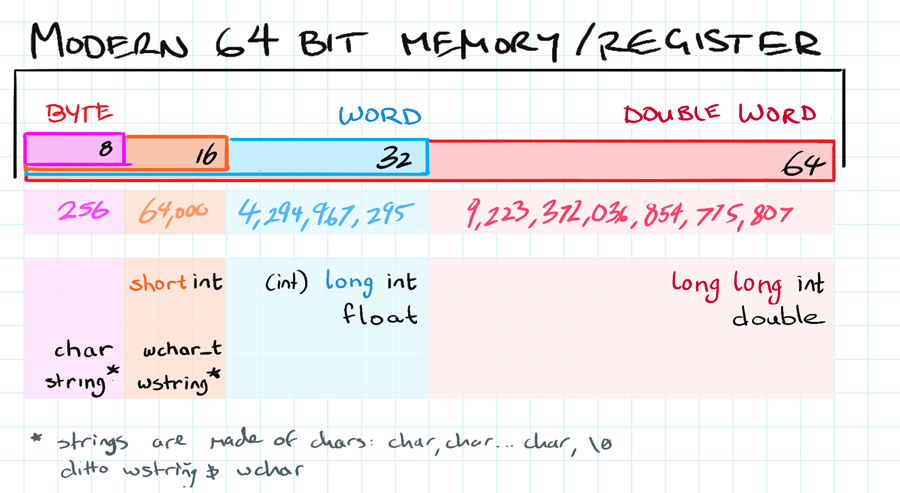 MODERN 64 BIT MEMORY/REGISTER
BYTE WORD DOUBLE WORD
8 16 32 64
256 64,000 4,294,967,295 9,223,372,036,854,775,807
short int (int) long int long long int
float double
char wchar_t
string* wstring*
* strings are made of chars: char, char... char, \0
ditto wstring & wchar